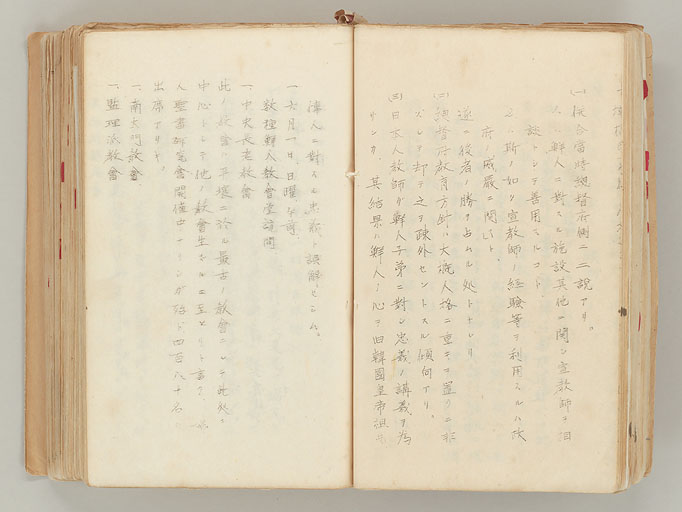 (一)併合當時總督府側ニ二説アリ。
1.鮮人ニ對スル施設其他ニ関シ宣教師ニ相
談シテ善用スルコト
2.斯ノ如ク宣教師ノ経験等ヲ利用スルハ政
府ノ威厳ニ関スト
遂ニ後者ノ勝ヲ占ムル処トナレリ
(二)総督府教育方針ハ大概人格ニ重キヲ置クニ非
ズシテ却テ之ヲ疎外セントスル傾向アリ。
(三)日本人教師ガ鮮人子弟ニ對シ忠義ノ講義ヲ為
サンカ、其結果ハ鮮人ノ心ヲ旧韓國皇帝
ニ對スル忠
一、六月一日、日曜、午前
数種鮮人教會堂訪問
一、中央長老教會
此ノ教會ハ平壌ニ於ル最古ノ教會ニシテ此処ヲ
中心トシテ他ノ教會生ルルニ至レリト言フ、
聖書研究會開催中ナリシガ殆ド四百八十名
出席アリタリ。
一、南大門教會
一、監理派教會